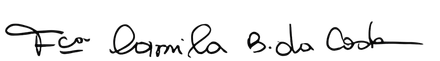 Fca Camila B. da Costa